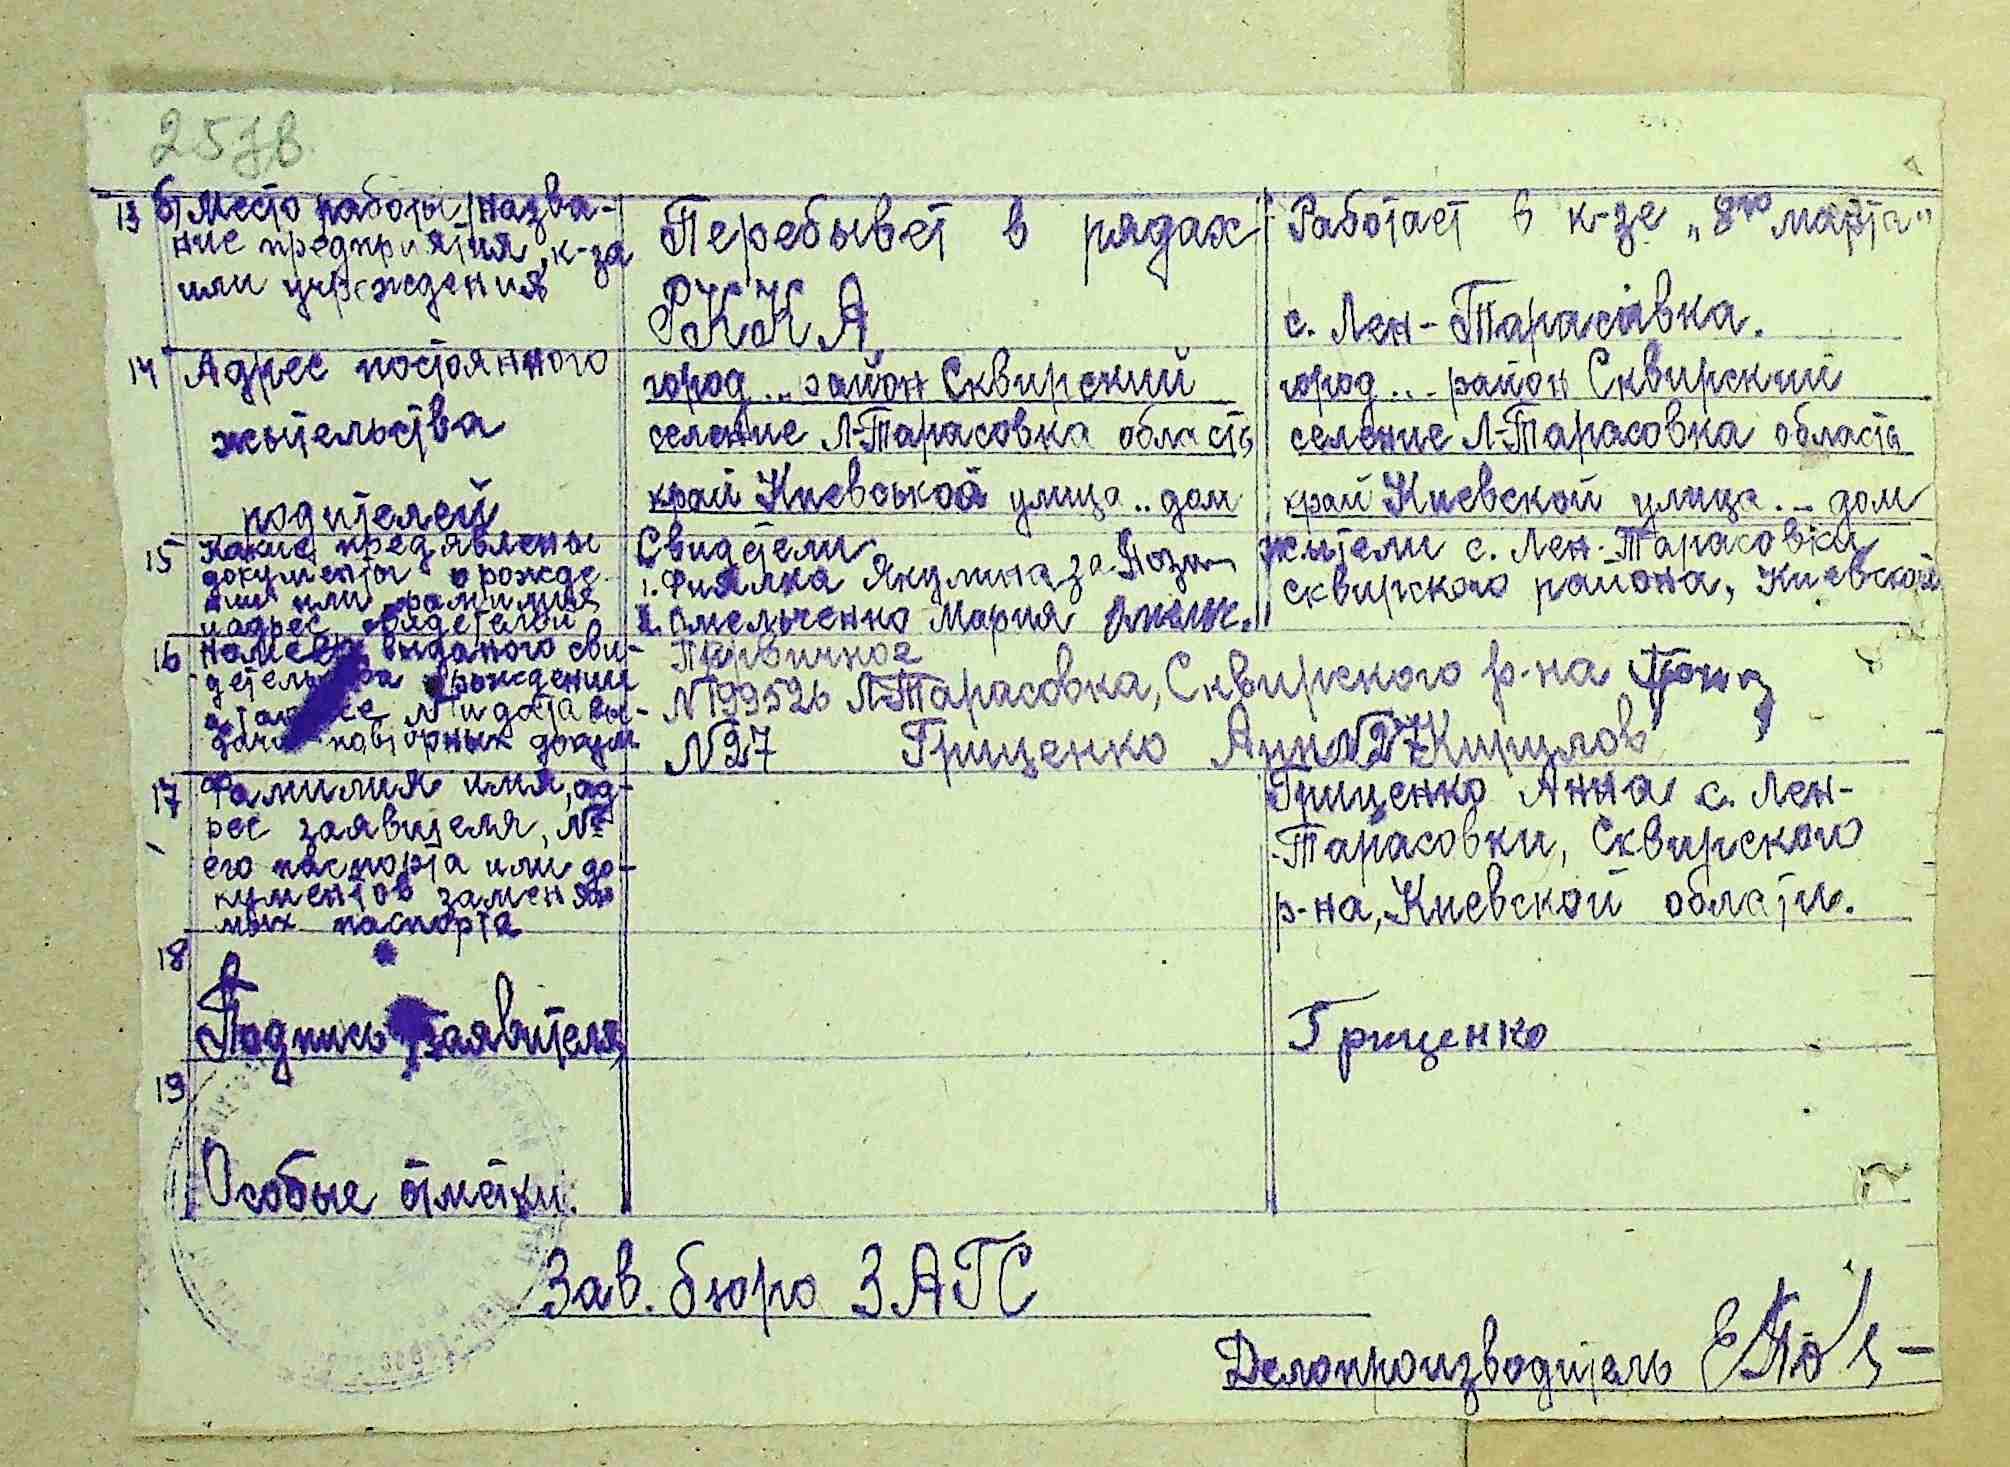 257в
13 б) Место работы, назва-
ние предприятия, к-за
или учреждения
Перебывет в рядах
РККА
Работает в к-зе „8го марта"
с. Лен-Тарасивка.
14 Адрес постоянного
жытельства
родителей
город... район Сквирский
селение Л-Тарасовка область
край Киевськой улица.. дом
город... район Сквирский
селение Л-Тарасовка область
край Киевской улица... дом
15 Какие предявлены
документы о рожде-
нии или фамилия
и адрес свядетелей
Свидетели
1. Фиялка Якулина
2. Омельченко Мария
жытели с. Лен-Тарасовки
Сквирского района, Киевской
16 выданого сви-
детельства рождении
№ и дата вы-
дачи повторных докум
Первичное
№199526 Л-Тарасовка, Сквирского р-на
№27 Гриценко Анна №27 Кирилов
17 Фамилия имя, ад-
рес заявителя, №
его паспорта или до-
кументов заменяю
мых паспорта
Гриценко Анна с. Лен-
Тарасовки, Сквирского
р-на, Киевской области.
18
Подпись заявителя
Гриценко
19
Особые отметки.
Зав. бюро ЗАГС
Делопроизводитель